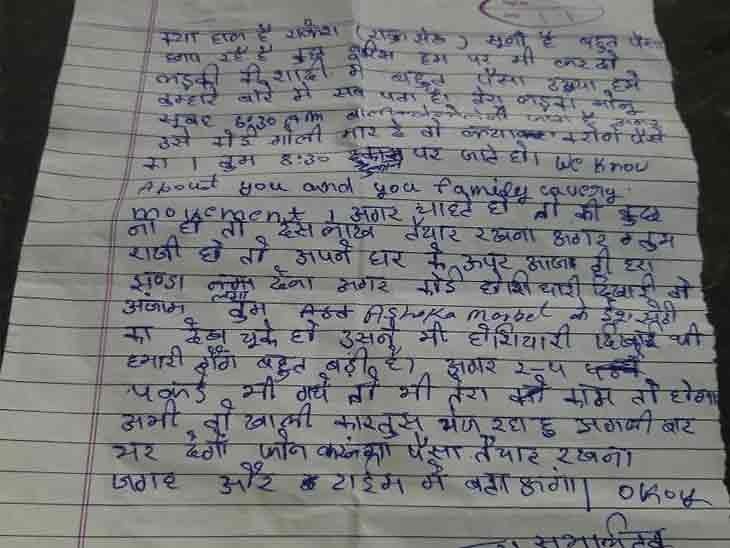 क्या हाल है राकेश (राक सेठ) सुना है बहुत पैसा
छाप रहे है कुछ हम पर भी कर दो
लडकी की शादी में बहुत पैसा हमे
तुम्हारे बारे में सब पता है। तेरा लडका मोनू
सुबह 6:30 AM जाता है अगर
उसे कोई गोली मार दे तो करोगे पैसे
का। तुम 8:30 पर जाते हो। We know
About you and you family every
movement। अगर चाहते हो तो की कुछ
ना हो तो दस लाख तैयार रखना अगर तुम
राजी हो तो अपने घर के ऊपर आज ही हरा
झण्डा लगा देना अगर कोई होशियारी दिखाई तो
अंजाम तुम Ashoka marbel के सेठी
का देख चुके हो उसने भी होशियारी दिखाई थी
हमारी गैंग बहुत बडी है। अगर 2-4
पकडे भी गये तो भी तेरा काम तो होगा
अभी तो खाली कारतुस भेज रहा हु अगली बार
भर देगा फोन करूंगा पैसा तैयार रखना
जगह और टाईम मैं बताऊंगा।